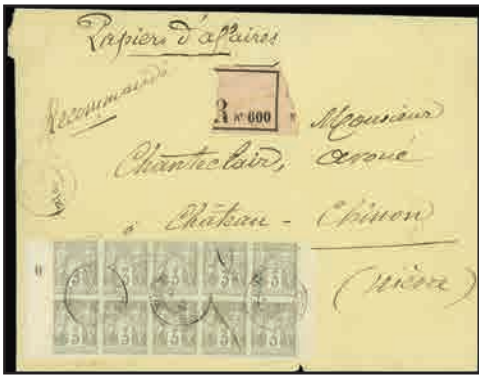 Papiers d'affaires
Recommandé
R No 600
Monsieur
Chanteclair, avoué
à Château-Chinon
(Nièvre)
3 3 3 3 3
3 3 3 3 3